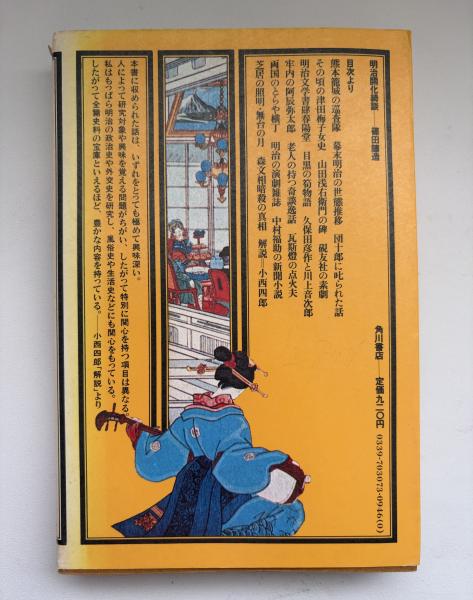 明治開化綺談 篠田鑛造
目次より
熊本籠城の巡査隊 幕末明治の世態推移 団十郎に叱られた話
その頃の津田梅子女史 山田浅右衛門の碑 硯友社の素劇
明治文学書肆春陽堂 目黒の筍物語 久保田彦作と川上音次郎
牢内の阿辰弥太郎 老人の持つ奇談逸話 瓦斯燈の点火夫
両国のとらや横丁 明治の演劇雑誌 中村福助の新聞小説
芝居の照明・無台の月 森文相暗殺の真相 解説=小西四郎
角川書店――定価九二〇円 0339-703073-0946(0)
本書に収められた話は、いずれをとっても極めて興味深い。
人によって研究対象や興味を覚える問題がちがい、したがって特別に関心を持つ項目は異なる。
私はもっぱら明治の政治史や外交史を研究し、風俗史や生活史などにも関心をもっている。
したがって全篇史料の宝庫といえるほど、豊かな内容を持っている。――小西四郎「解説」より